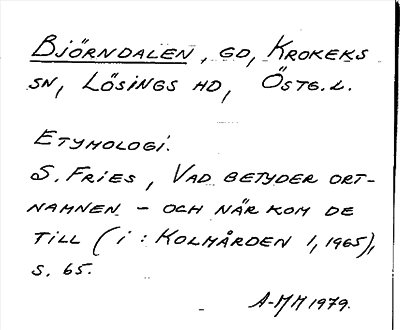 BJÖRNDALEN, GD, KROKEKS
SN, LÖSINGS HD, ÖSTG. L.
ETYMOLOGI.
S. FRIES, VAD BETYDER ORT-
NAMNEN - OCH NÄR KOM DE
TILL (i: KOLMÅRDEN 1, 1965),
S. 65.
A-MM 1979.